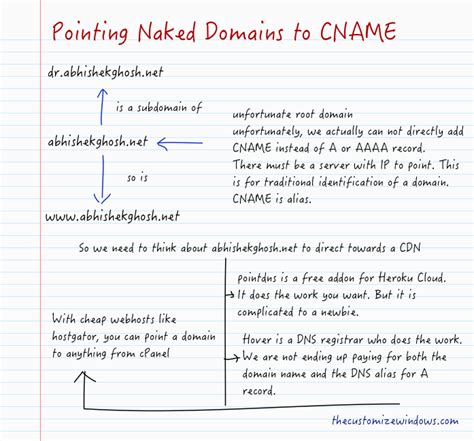 Pointing Naked Domains to CNAME
dr.abhishekghosh.net
is a subdomain of
abhishekghosh.net
so is
www.abhishekghosh.net
unfortunate root domain
unfortunately, we actually can not directly add
CNAME instead of A or AAAA record.
There must be a server with IP to point. This
is for traditional identification of a domain.
CNAME is alias.
So we need to think about abhishekghosh.net to direct towards a CDN
With cheap webhosts like
hostgator, you can point a domain
to anything from cPanel
pointdns is a free addon for Heroku Cloud.
It does the work you want. But it is
complicated to a newbie.
Hover is a DNS registrar who does the work.
We are not ending up paying for both the
domain name and the DNS alias for A
record.
thecustomizewindows.com